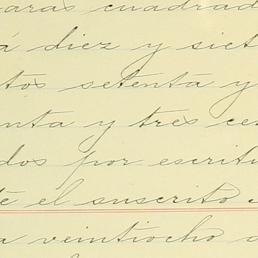 aras cuadrad
á diez y siet
tos setenta y
enta y tres cen
dos por escritu
te el suscrito
a veintiocho d